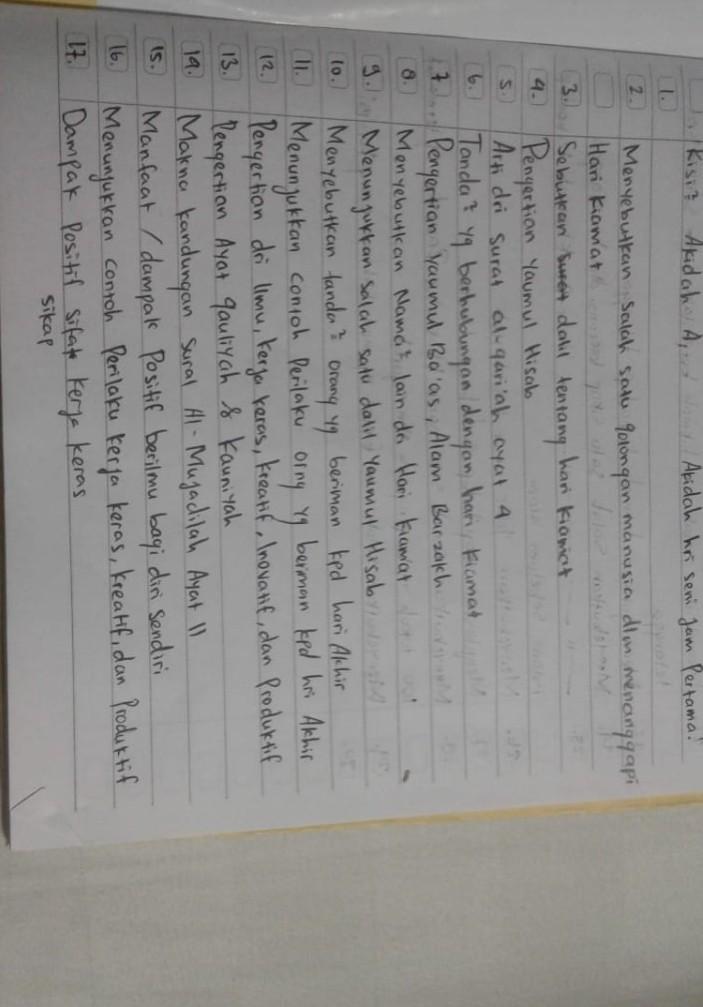 Kisi² Akidah A, Akidah hri seni Jam Pertama!
1.
2. Menyebutkan salah satu golongan manusia dlm menanggapi
Hari Kiamat
3. Sebutkan dalil tentang hari kiamat
4. Pengertian Yaumul Hisab
5. Arti dri surat al-qari'ah ayat 4
6. Tanda² yg berhubungan dengan hari kiamat
7. Pengertian Yaumul Ba'as, Alam Barzakh
8. Menyebutkan Nama² lain dri Hari kiamat
9. Menunjukkan salah satu dalil Yaumul Hisab
10. Menyebutkan tanda² orang yg beriman kpd hari Akhir
11. Menunjukkan contoh Perilaku orng yg beriman kpd hri Akhir
12. Pengertian dri Ilmu, kerja keras, kreatif, Inovatif, dan Produktif
13. Pengertian Ayat qauliyah & Kauniyah
14. Makna kandungan surat Al-Mujadilah Ayat 11
15. Manfaat / dampak Positif berilmu bagi diri sendiri
16. Menunjukkan contoh Perilaku kerja keras, kreatif, dan Produktif
17. Dampak Positif sifat kerja keras
sikap